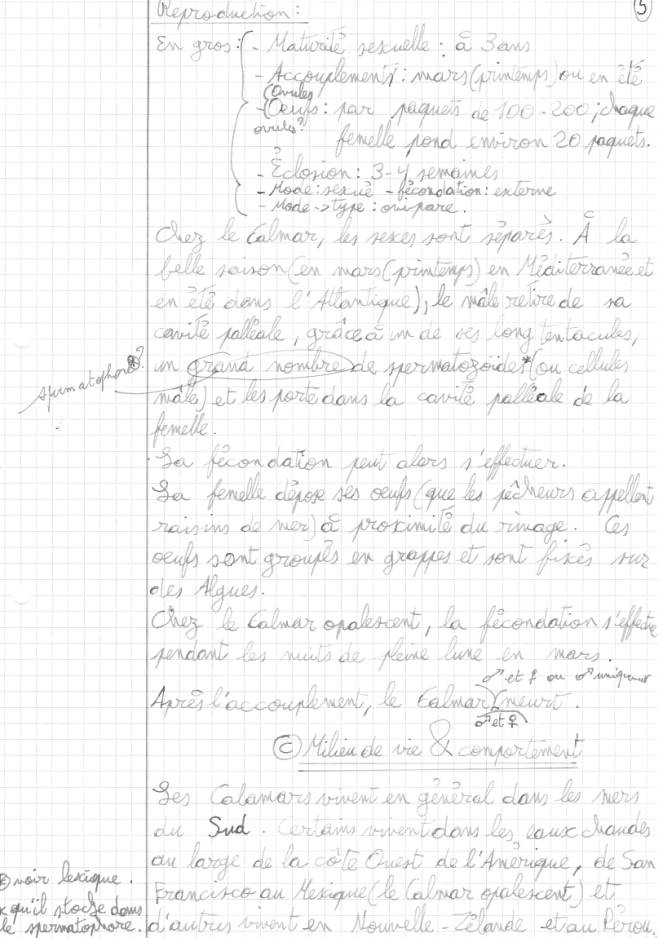 Reproduction :
5
En gros : - Maturité sexuelle : à 3 ans
- Accouplement : mars (printemps) ou en été
(Ovules
- Oeufs : par paquets de 100 - 200 ; chaque
ovules?
femelle pond environ 20 paquets.
- Éclosion : 3-4 semaines
- Mode : sexué - fécondation : externe
- Mode -> type : ovipare.
Chez le Calmar, les sexes sont séparés. À la
belle saison (en mars (printemps) en Méditerranée et
en été dans l'Atlantique), le mâle retire de sa
cavité palléale, grâce à un de ses long tentacules,
un grand nombre de spermatozoïdes* (ou cellules
spermatophore?
mâle) et les porte dans la cavité palléale de la
femelle.
La fécondation peut alors s'effectuer.
La femelle dépose ses oeufs (que les pêcheurs appellent
raisins de mer) à proximité du rivage. Ces
oeufs sont groupés en grappes et sont fixés sur
des Algues.
Chez le Calmar opalescent, la fécondation s'effectue
pendant les nuits de pleine lune en mars.
♂ et ♀ ou ♂ uniquement
Après l'accouplement, le Calmar meurt.
♂ et ♀
C Milieu de vie & comportement
Les Calamars vivent en général dans les mers
du Sud. Certains vivent dans les eaux chaudes
au large de la côte Ouest de l'Amérique, de San
Francisco au Mexique (le Calmar opalescent) et
d'autres vivent en Nouvelle-Zélande et au Pérou.
voir lexique.
* qu'il stocke dans
le spermatophore.